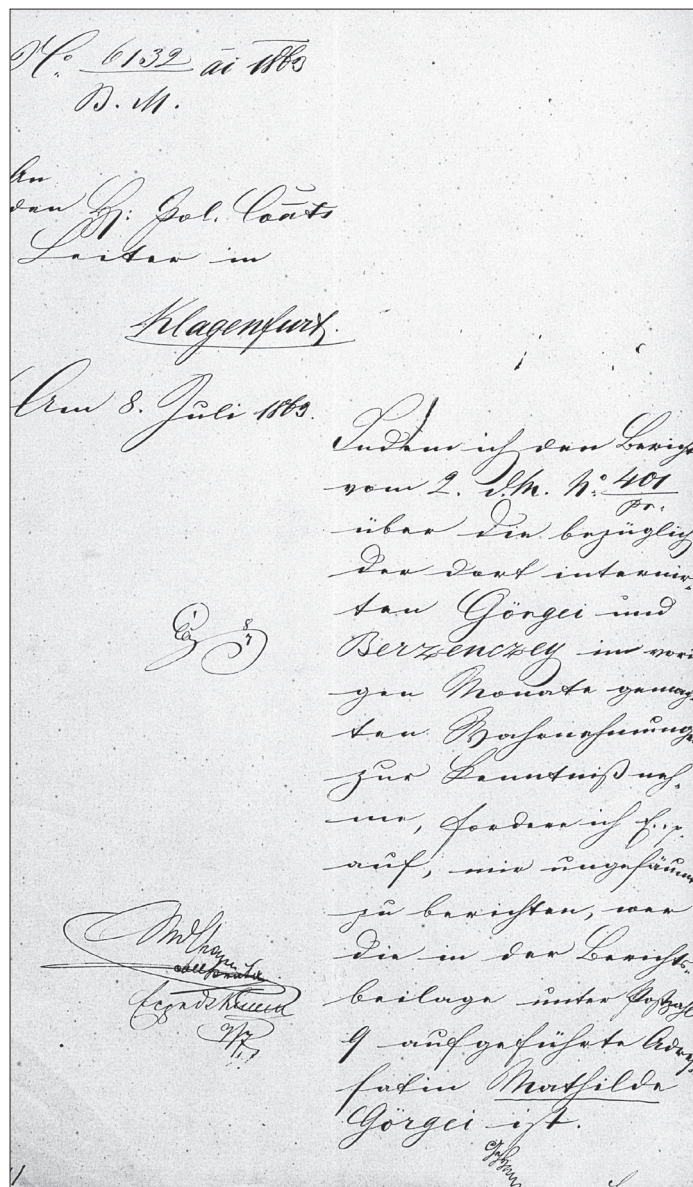 No. 6132 ai 1863
B. M.
An
den H: Pol. Coats
Leiter in
Klagenfurt.
Am 8. Juli 1863.
Indem ich den Bericht
vom 2. d. M. No. 401
pr.
über die bezüglich
der dort internir-
ten Görgei und
Berzenczey im vori-
gen Monate gemach
ten Wahrnehmungen
zur Kenntniß neh-
me, fordere ich E.:
auf, mir ungesäum
zu berichten, wer
die in der Berichts-
beilage unter Postzahl
9 aufgeführte Adres
satin Mathilde
Görgei ist.
8/7